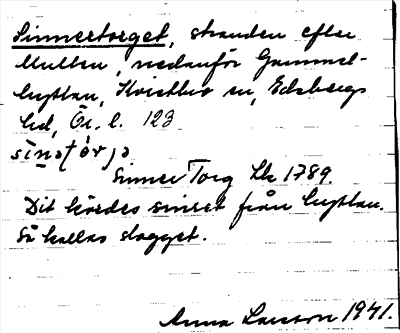 Sinnertorget, stranden efter
Multen, nedanför Gammel-
hyttan, Kvistbro sn, Edsbergs
hd, Ör. l. 123
Sinner Torg Lk 1789.
Dit kördes sinret från hyttan.
Så kallas slagget.
Anna Larsson 1941.